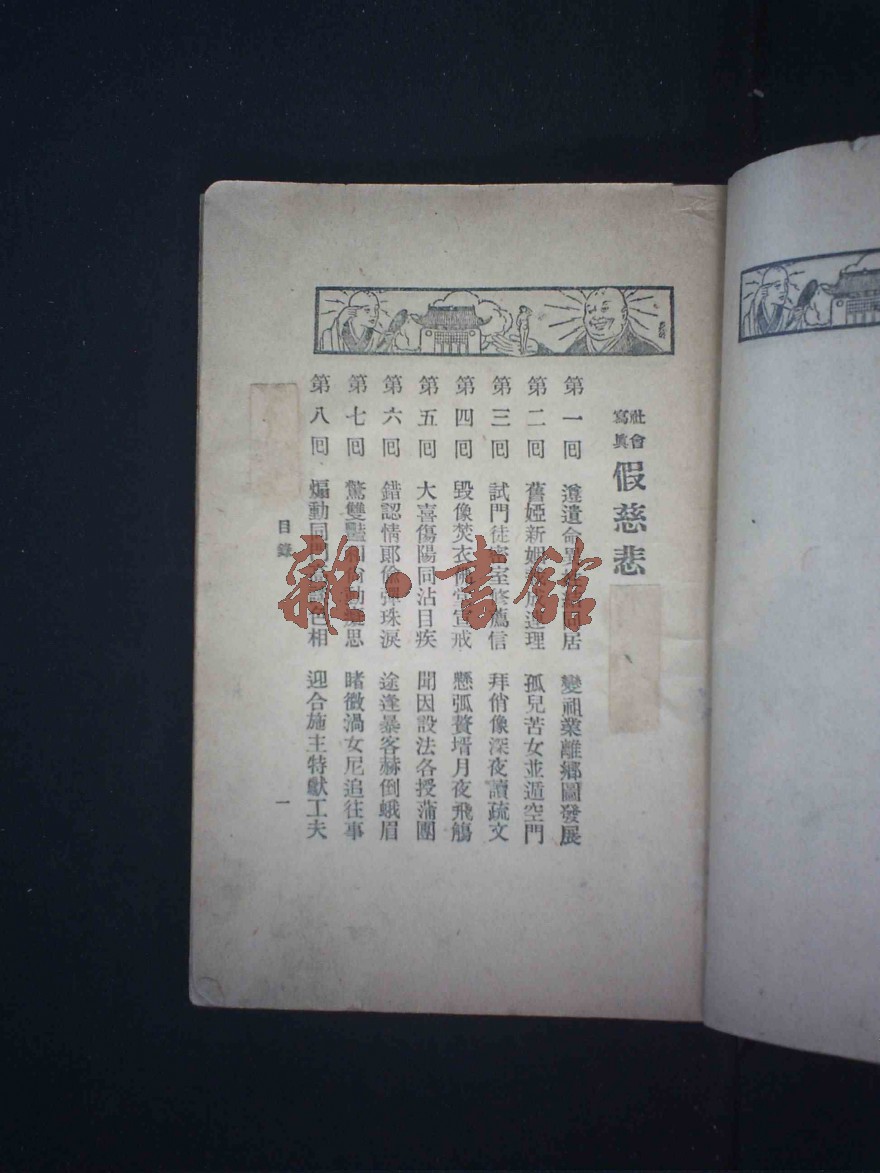 社會寫眞 假慈悲
第一回 遵遺命 居 變祖業離鄉圖發展
第二回 舊婭新姻 連理 孤兒苦女並遁空門
第三回 試門徒密室 信 拜俏像深夜讀疏文
第四回 毀像焚衣 宣戒 懸弧贅壻月夜飛觴
第五回 大喜傷陽同沾目疾 聞因設法各授蒲團
第六回 錯認情郎偷彈珠淚 途逢暴客赫倒蛾眉
第七回 驚雙豔 思 睹微渦女尼追往事
第八回 煽動同門 色相 迎合施主特獻工夫
目錄
一
雜·書館